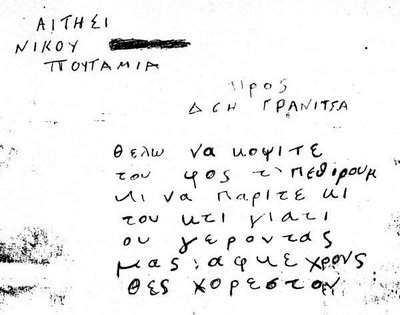 ΑΙΤΗΣΙ
ΝΙΚΟΥ
ΠΟΥΤΑΜΙΑ
Προς
ΔΣΗ ΓΡΑΝΙΤΣΑ
θελω να κοψιτε
του φος τ πεθιρουμ
κι να παριτε κι
του κτι γιατι
ου γεροντας
μας αφκε χρονς
θες χορεστον